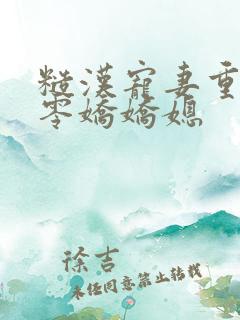 糙漢寵妻重
零嬌嬌媳
徐吉
未经同意禁止转载